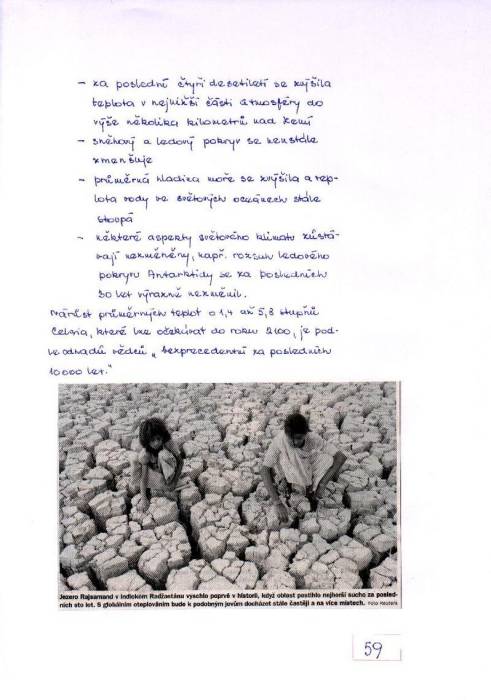 - za poslední čtyři desetiletí se zvýšila
teplota v nejnižší části atmosféry do
výše několika kilometrů nad Zemí
- sněhový a ledový pokryv se neustále
zmenšuje
- průměrná hladina moře se zvýšila a tep-
lota vody ve světových oceánech stále
stoupá
- některé aspekty světového klimatu zůstá-
vají nezměněny, např. rozsah ledového
pokryvu Antarktidy se za posledních
30 let výrazně nezměnil.
Nárůst průměrných teplot o 1,4 až 5,8 stupňů
Celsia, které lze očekávat do roku 2100, je pod-
le odhadů vědců „bezprecedentní za posledních
10 000 let."
Jezero Rajsamand v indickém Radžastánu vyschlo poprvé v historii, když oblast postihlo nejhorší sucho za posled-
ních sto let. S globálním oteplováním bude k podobným jevům docházet stále častěji a na více místech. Foto Reuters
59